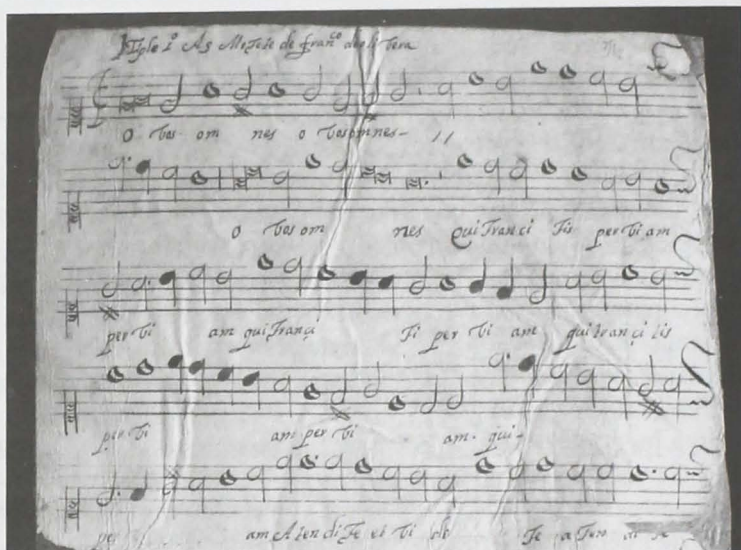 Tiple 1º A 5 Motete de franco de
o vos om nes o vosomnes
o vos om nes qui tranci tis per vi am
per vi am qui tranci ti per vi am qui tranci tis
per vi am per vi am. qui
am A ten di te et vi de te